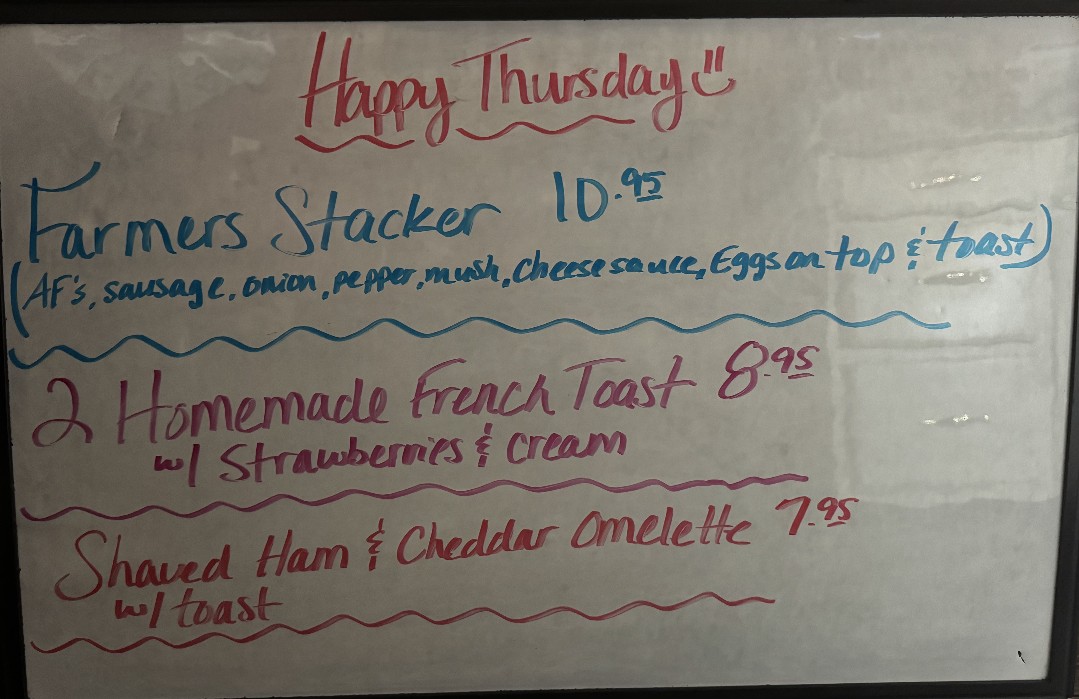 Happy Thursday
Farmers Stacker 10.95
(AF's, sausage, onion, pepper, mush, Cheese sauce, Eggs on top & toast)
2 Homemade French Toast 8.95
w/ Strawberries & cream
Shaved Ham & Cheddar Omelette 7.95
w/ toast